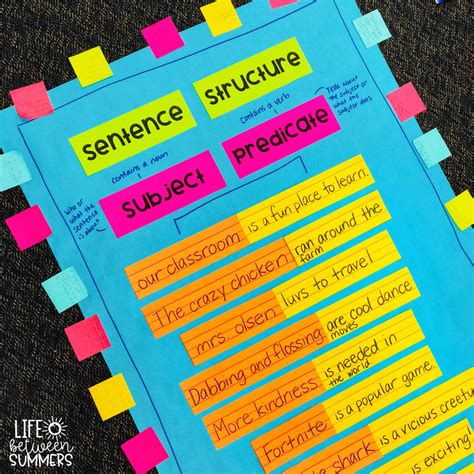 sentence
structure
contains a noun
contains a verb
Tells about
the subject or
what the
subject does
who or
what the
sentence
is about
subject
predicate
our classroom is a fun place to learn.
The crazy chicken ran around the
farm
mrs. olsen luvs to travel
Dabbing and flossing are cool dance
moves
More kindness is needed in
the world
Fortnite is a popular game.
The shark is a vicious
is exciting!
LIFE
between
SUMMERS